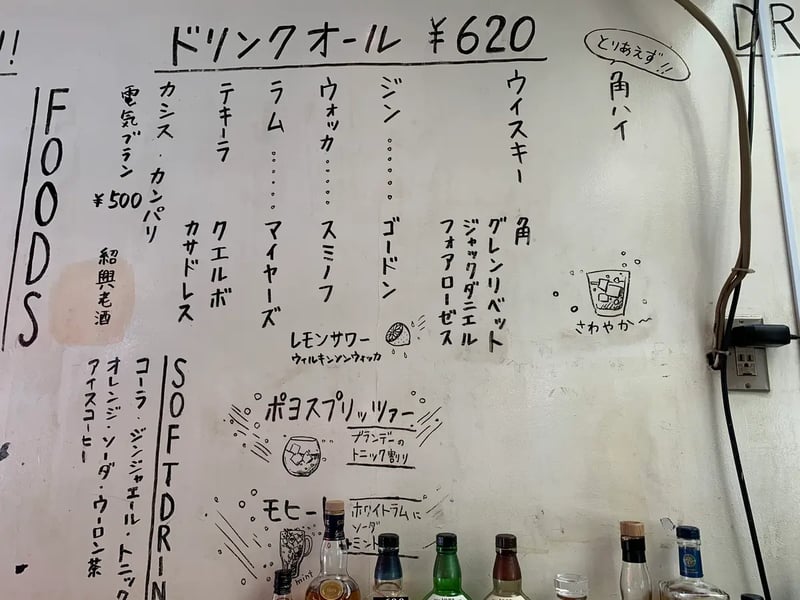 ドリンクオール ¥620
とりあえず!!
角ハイ
さわやか〜
ウイスキー 角
グレンリベット
ジャックダニエル
フォアローゼス
ジン…… ゴードン
ウォッカ…… スミノフ
ラム…… マイヤーズ
テキーラ クエルボ
カサドレス
カシス・カンパリ
電気ブラン
¥500
紹興老酒
レモンサワー
ウィルキンソンウォッカ
ポヨスプリッツァー
ブランデーの
トニック割り
モヒート
ホワイトラムに
ソーダ
ミント
mint
FOODS
SOFTDRIN
コーラ・ジンジャエール・トニック
オレンジ・ソーダ・ウーロン茶
アイスコーヒー
!!
DR